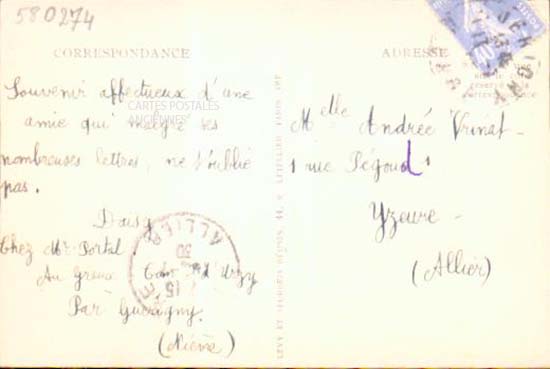 580274
CORRESPONDANCE
ADRESSE
Souvenir affectueux d'une
amie qui malgré tes
nombreuses lettres, ne t'oublie
pas.
Daisy
Chez Mr Portal
Au Greux
d'Urzy
Par Guérigny.
(Nièvre)
CARTES POSTALES
ANCIENNES
Melle Andrée Vrinat
1 rue Pégoud 1
Yzeure
(Allier)
ALLIER
LEVY ET NEURDEIN RÉUNIS, 44, R. LETELLIER, PARIS